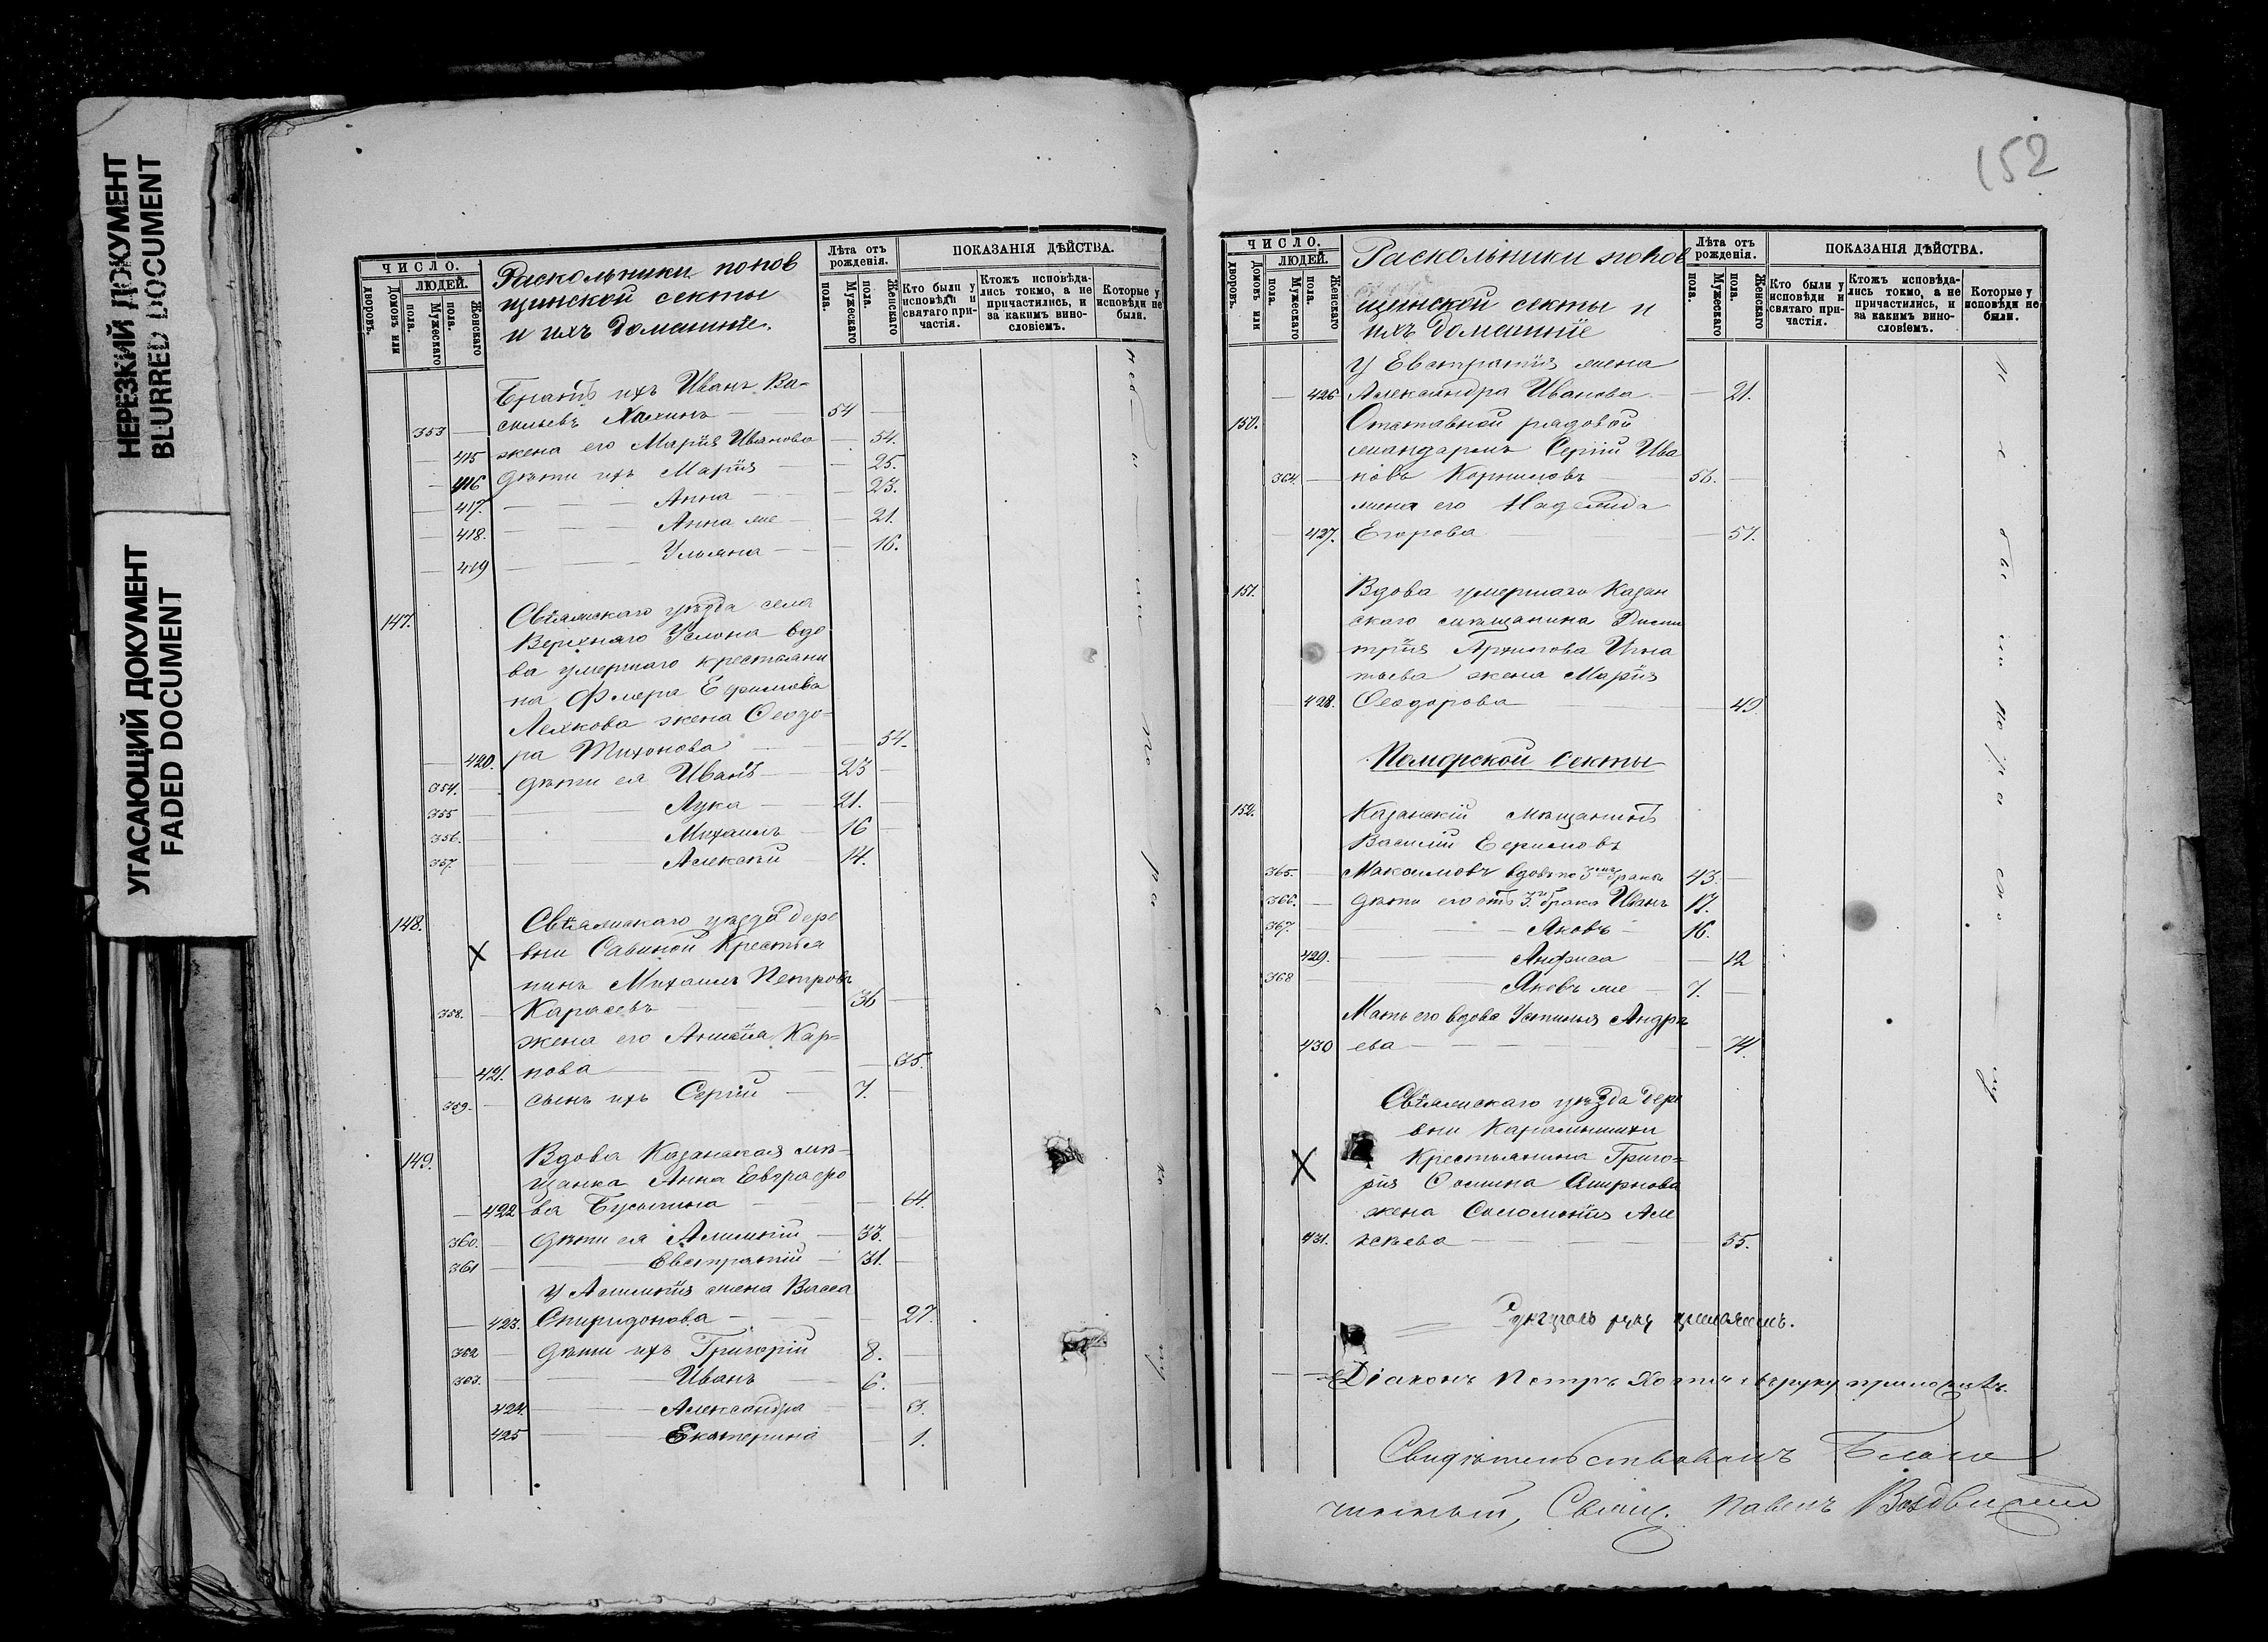 НЕРЕЗКИЙ ДОКУМЕНТ
BLURRED DOCUMENT
УГАСАЮЩИЙ ДОКУМЕНТ
FADED DOCUMENT
ЧИСЛО.
ЛЮДЕЙ.
Домовъ или дворовъ.
Мужескаго пола.
Женскаго пола.
Раскольники попов
щинской секты
и ихъ домашніе.
Лѣта отъ рожденія.
Мужескаго пола.
Женскаго пола.
ПОКАЗАНІЯ ДѢЙСТВА.
Кто были у исповѣди и святаго причастія.
Ктожъ исповѣдались токмо, а не причастились, и за какимъ винословіемъ.
Которые у исповѣди не были.
Братъ ихъ Иванъ Ва-
353 сильевъ 54
415 жена его Марія Иванова 54.
416 дѣти ихъ Марія 25.
417. Анна 23.
418. Анна мѣ 21.
419 Ульяна 16.
147. Свіяжскаго уѣзда села
Верхняго Услона вдо
ва умершаго крестьяни
на Ефимова
жена Ѳеодо-
420. ра Тихонова 54.
354. дѣти ея Иванъ 23
355 Лука 21.
356. Михаилъ 16
357. Алексѣй 14.
148. Свіяжскаго уѣзда дере
X вни Савиной Крестья
нинъ Михаилъ Петровъ
358. Карасевъ 36
жена его Кар-
421. пова 35.
359. сынъ ихъ Сергій 7.
149. Вдова Казанская мѣ-
щанка Анна Евграфо
422 ва 64.
360. дѣти ея 33.
361 Евстратій 31.
у жена Васса
423. Спиридонова 27.
362 дѣти ихъ Григорій 8.
363. Иванъ 6.
424. Александра 3.
425 Екатерина 1.
152
ЧИСЛО.
ЛЮДЕЙ.
Домовъ или дворовъ.
Мужескаго пола.
Женскаго пола.
Раскольники попов
щинской секты и
ихъ домашніе
Лѣта отъ рожденія.
Мужескаго пола.
Женскаго пола.
ПОКАЗАНІЯ ДѢЙСТВА.
Кто были у исповѣди и святаго причастія.
Ктожъ исповѣдались токмо, а не причастились, и за какимъ винословіемъ.
Которые у исповѣди не были.
У Евстратія жена
426 Александра Иванова 21.
150. Отставной рядовой
жандармъ Сергій Ива
364. новъ Корниловъ 56.
жена его Надежда
427. Егорова 51.
151. Вдова умершаго Казан
скаго мѣщанина Дими
трія Архипова Игна
тьева жена Марія
428. Ѳеодорова 49.
Поморской секты
152. Казанскій мѣщанинъ
Василій Ефимовъ
365. Максимовъ вдовъ по 3мъ бракѣ 43.
366. дѣти его отъ 3. брака Иванъ 17.
367. Яковъ 16.
429. Анфиса 12
368 Яковъ мѣ 7.
Мать его вдова Устинья Андре
430 ева 74.
Свіяжскаго уѣзда дере
вни
X Крестьянина Григо-
рія Смирнова
жена Соломонія Але
431. ксѣева 35.
Діаконъ Петръ руку приложилъ.
Свидѣтельствовалъ Благо
чинный, Свящ. Павелъ